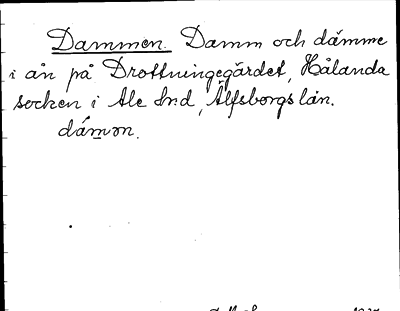 Dammen. Damm och dämme
i ån på Drottningegärdet, Hålanda
socken i Ale hrd, Älfsborgs län.
dámon.